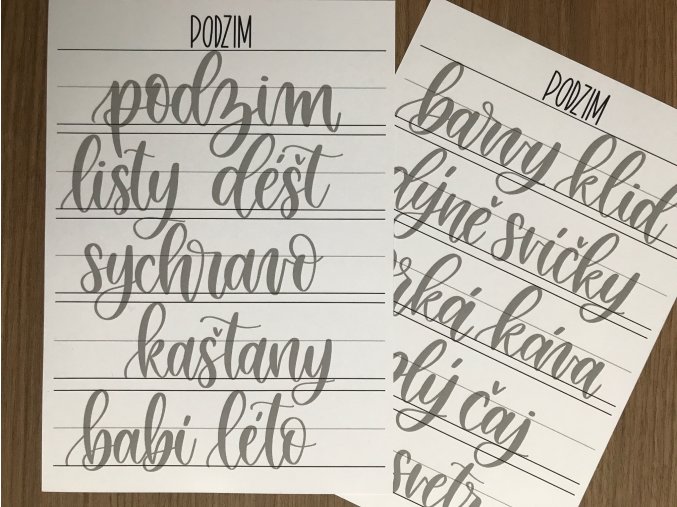 PODZIM
podzim
listy déšt
sychravo
kaštany
babí léto
PODZIM
barvy klid
dýně svíčky
rká káva
lý čaj
svetr